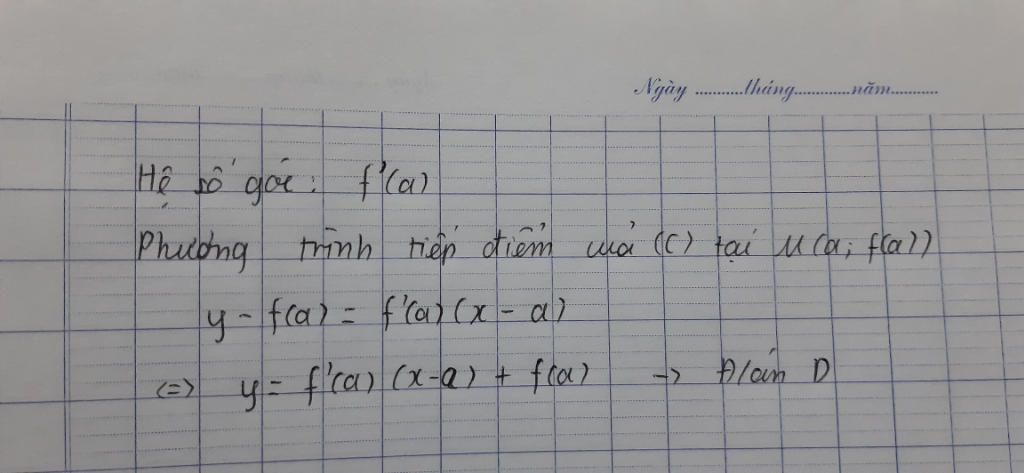 Ngày ...........tháng.............năm...........
Hệ số góc: f'(a)
Phương trình tiếp điểm của (C) tại M(a; f(a))
y - f(a) = f'(a)(x - a)
(=) y = f'(a) (x-a) + f(a) → Đ/án D